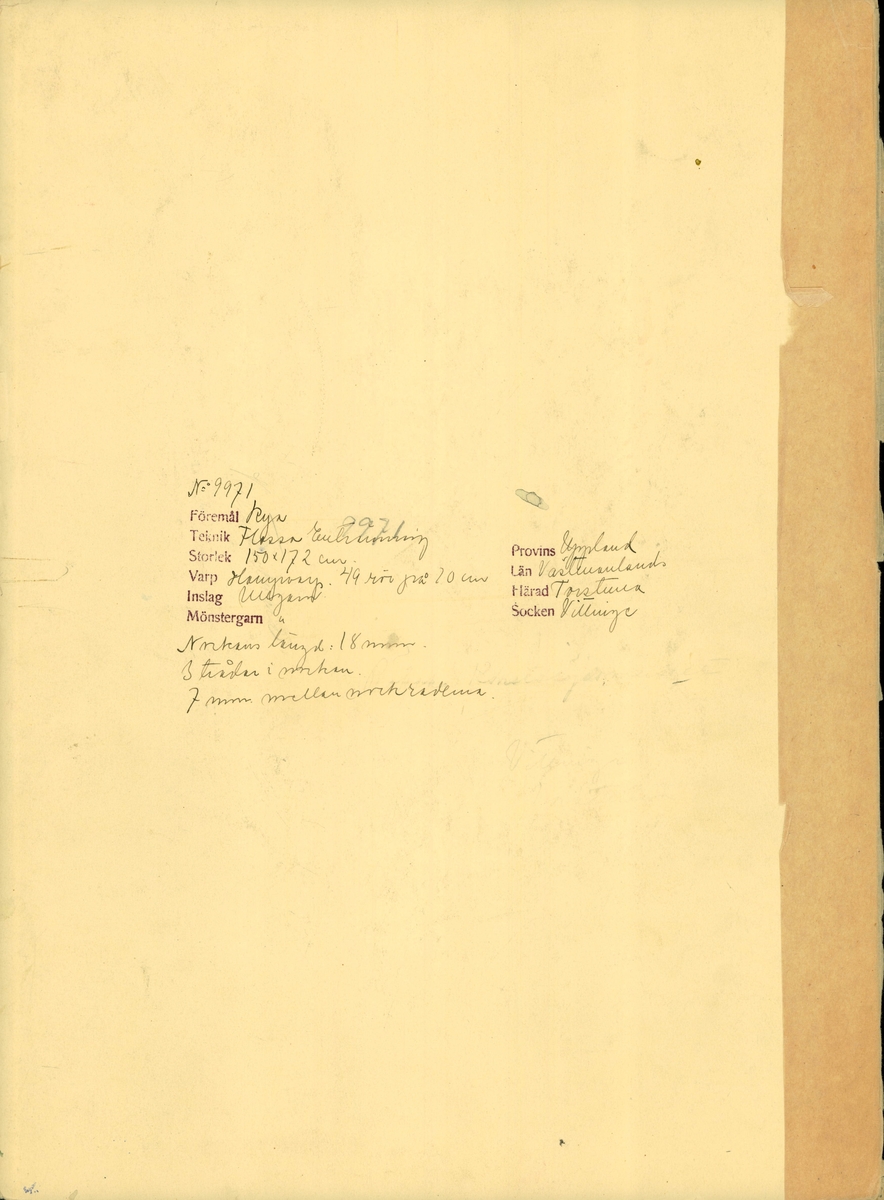 No 9971
Föremål Rya
9971
Teknik Flossa Enkelknuting
Storlek 150 x 172 cm.
Varp Hampvarp. 49 rör på 20 cm
Inslag Ullgarn
Mönstergarn "
Nockans längd: 18 mm.
3 trådar i nockan.
7 mm. mellan nockraderna.
Provins Uppland
Län Västmanlands
Härad Torstuna
Socken Villinge